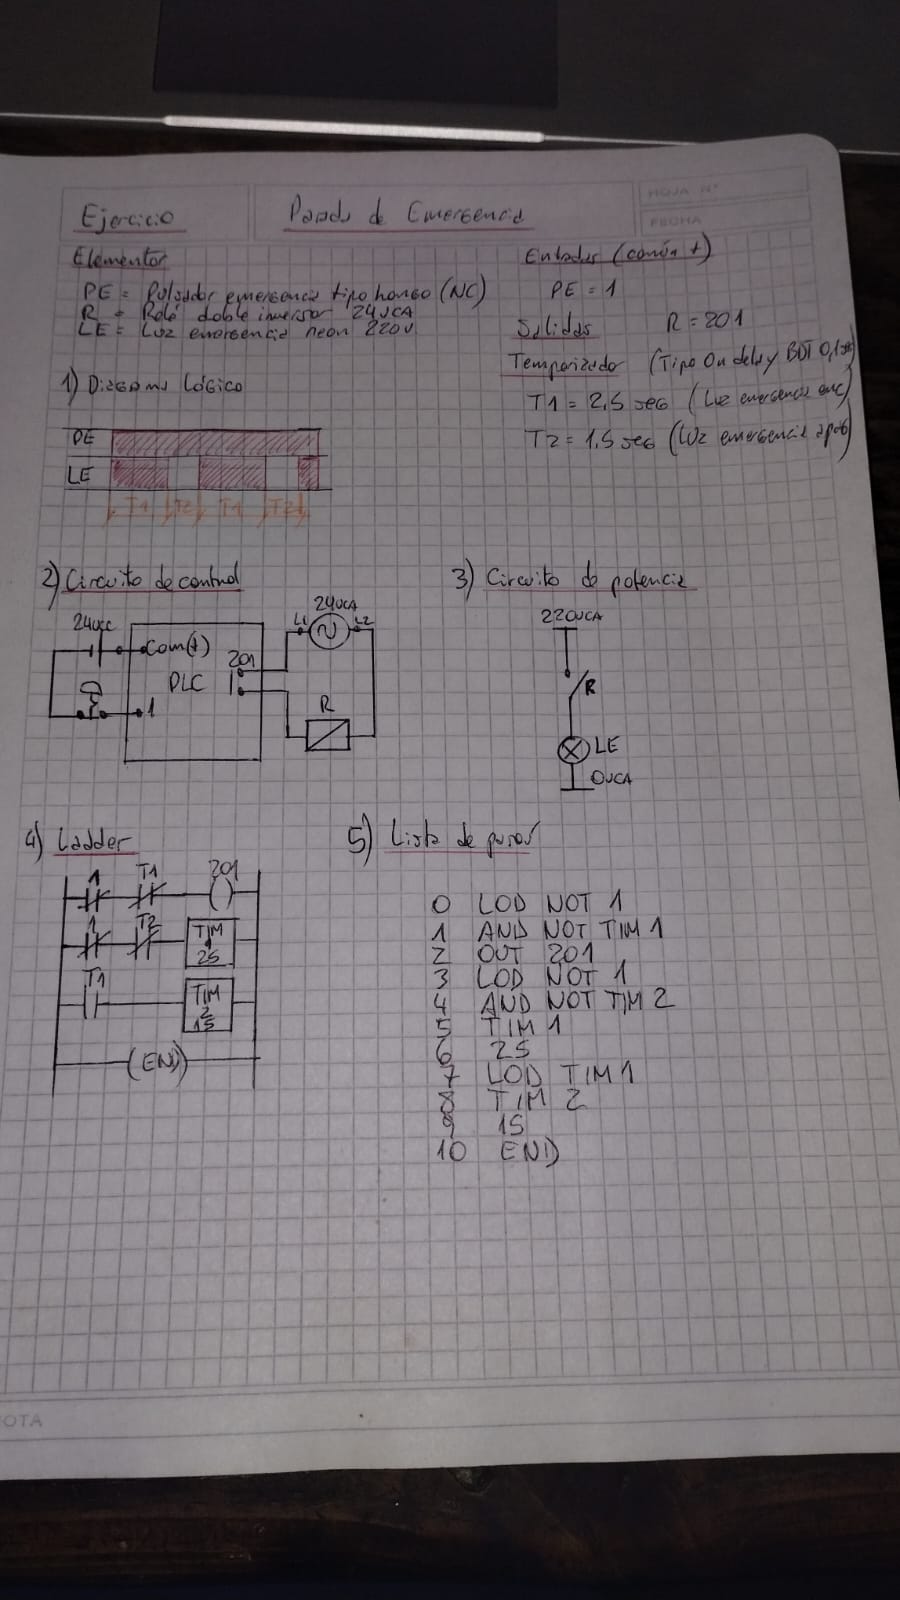 HOJA Nº
FECHA
Ejercicio
Parada de Emergencia
Elementos
PE = Pulsador emergencia tipo hongo (NC)
R = Relé doble inversor 24VCA
LE = Luz emergencia neon 220V
Entradas (común +)
PE = 1
Salidas
R = 201
Temporizador (Tipo On delay BDT 0,1
T1 = 2,5 seg (Luz emergencia enc)
T2 = 1,5 seg (Luz emergencia apag)
1) Diagrama Lógico
PE
LE
T1 T2 T1 T2
2) Circuito de control
24VCC
Com(+)
PLC
1
201
24VCA
L1 L2
R
3) Circuito de potencia
220VCA
R
LE
0VCA
4) Ladder
1 T1 201
1 T2 TIM
1
25
T1 TIM
2
15
(END)
5) Lista de pasos
0 LOD NOT 1
1 AND NOT TIM 1
2 OUT 201
3 LOD NOT 1
4 AND NOT TIM 2
5 TIM 1
6 25
7 LOD TIM 1
8 TIM 2
9 15
10 END
OTA